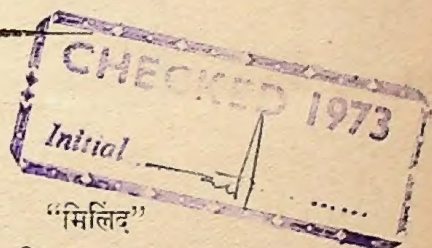 CHECKED 1973
Initial
“मिलिंद”